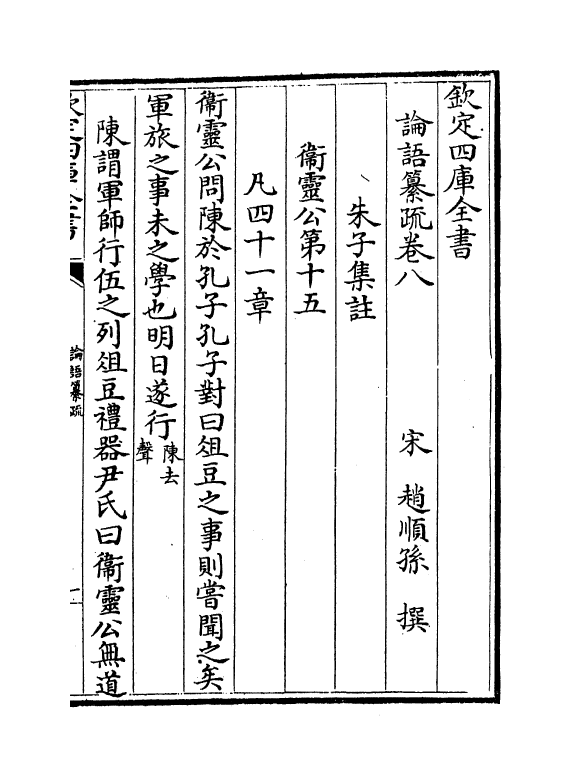 欽定四庫全書
論語纂疏卷八　宋　趙順孫　撰
朱子集註
衞靈公第十五
凡四十一章
衞靈公問陳於孔子孔子對曰俎豆之事則嘗聞之矣
軍旅之事未之學也明日遂行陳去聲
陳謂軍師行伍之列俎豆禮器尹氏曰衞靈公無道
欽定四庫全書
論語纂疏
一